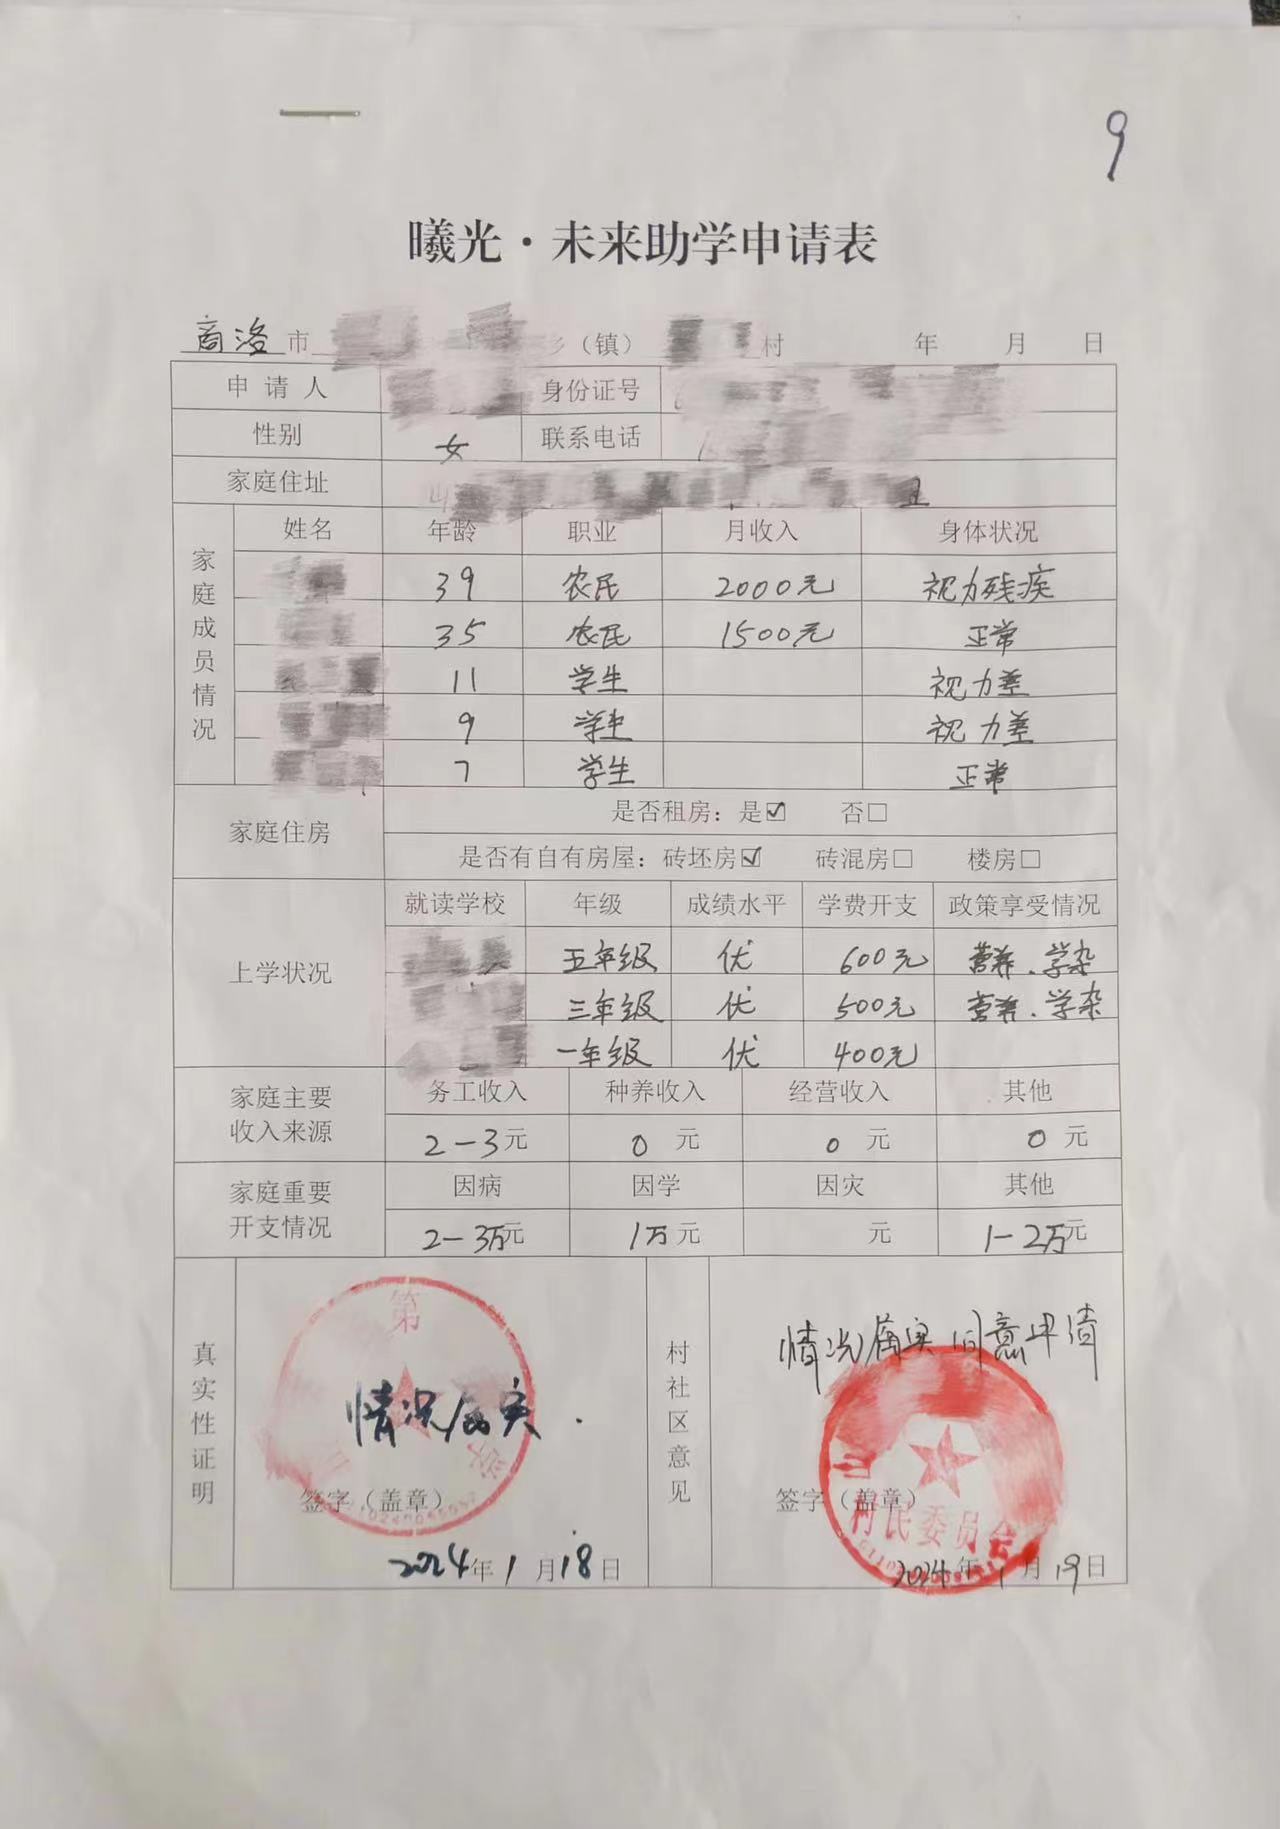 9
曦光·未来助学申请表
商洛市 乡（镇） 村 年 月 日
申请人 身份证号
性别 女 联系电话
家庭住址
家庭成员情况
姓名 年龄 职业 月收入 身体状况
39 农民 2000元 视力残疾
35 农民 1500元 正常
11 学生 视力差
9 学生 视力差
7 学生 正常
家庭住房
是否租房：是☑ 否□
是否有自有房屋：砖坯房☑ 砖混房□ 楼房□
上学状况
就读学校 年级 成绩水平 学费开支 政策享受情况
五年级 优 600元 营养、学杂
三年级 优 500元 营养、学杂
一年级 优 400元
家庭主要收入来源
务工收入 种养收入 经营收入 其他
2-3元 0元 0元 0元
家庭重要开支情况
因病 因学 因灾 其他
2-3万元 1万元 元 1-2万元
真实性证明
第
情况属实.
签字（盖章）
2024年1月18日
村社区意见
情况属实 同意申请
签字（盖章）
村民委员会
2024年1月19日